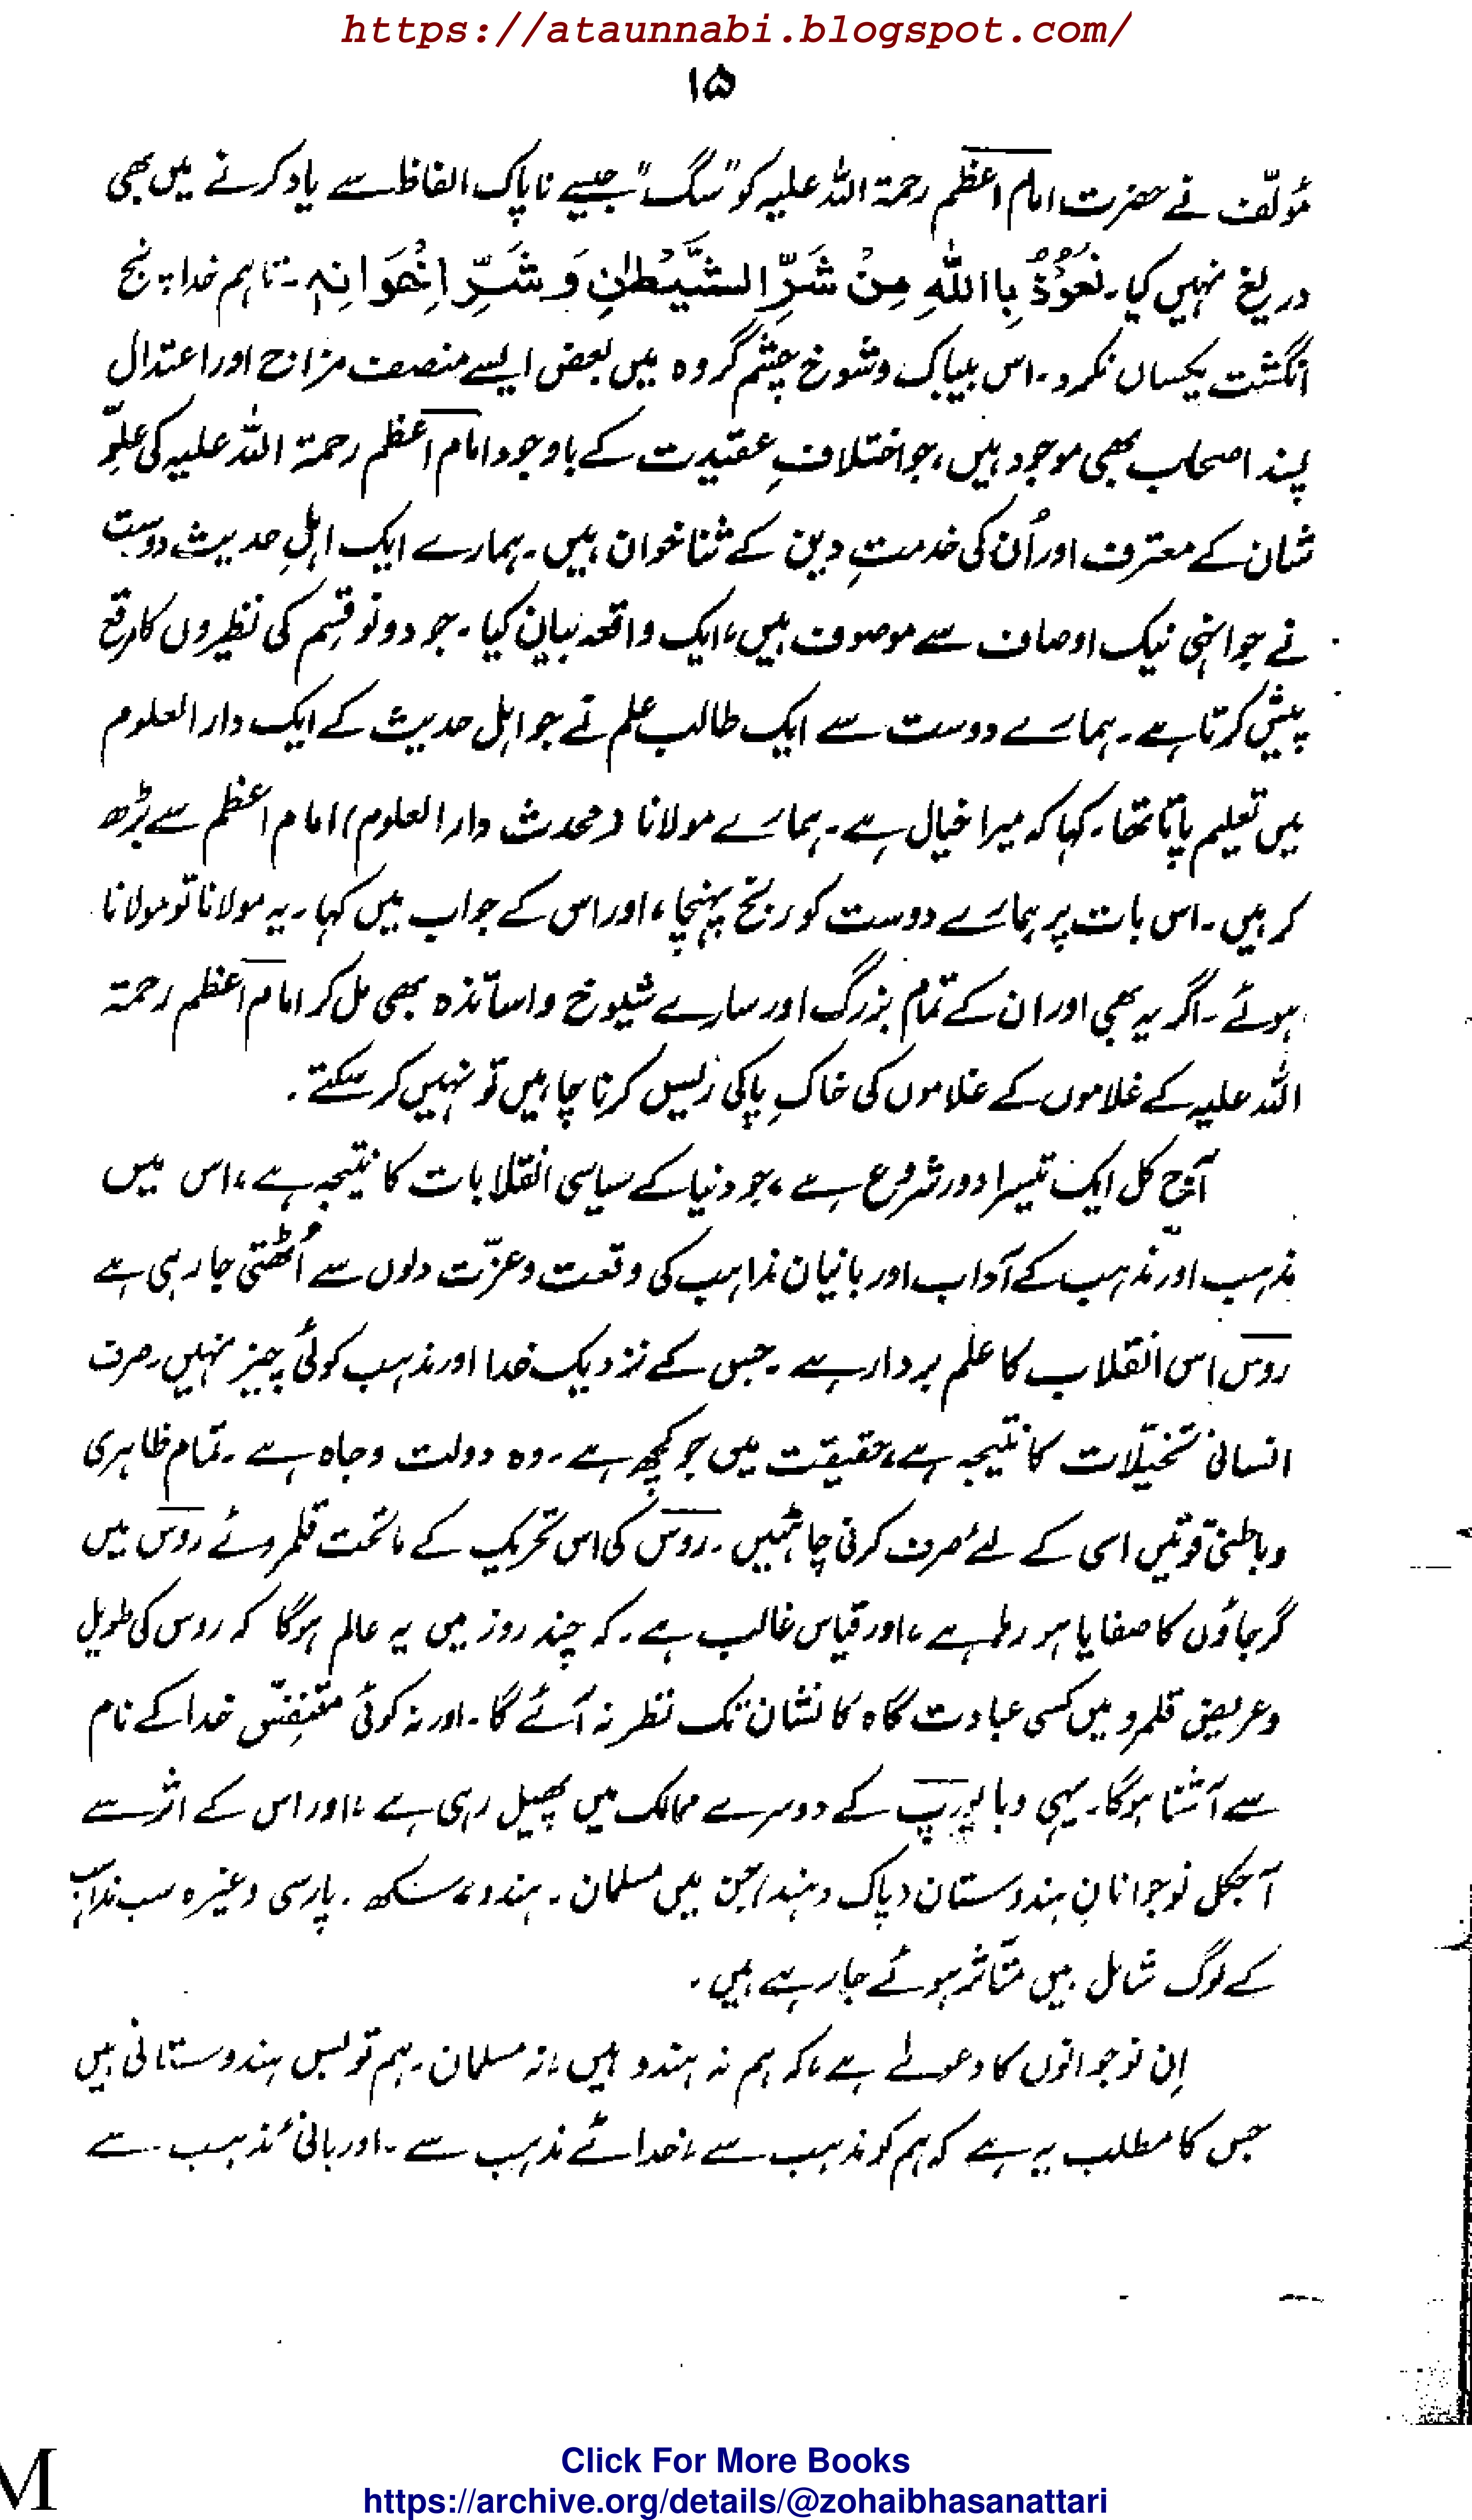 https://ataunnabi.blogspot.com/
۱۵
مؤلّف نے حضرت امام اعظم رحمۃ اللہ علیہ کو "سگ" جیسے ناپاک الفاظ سے یاد کرنے میں بھی
دریغ نہیں کیا۔ نَعُوْذُ بِااللّٰهِ مِنْ شَرِّ الشَّيْطٰنِ وَ شَرِّ اِخْوَانِهٖ۔ تاہم خدا پنج
انگشت یکساں نکرد۔ اس بیباک وشوخ چشم گروہ میں بعض ایسے منصف مزاج اور اعتدال
پسند اصحاب بھی موجود ہیں، جو اختلافِ عقیدت کے باوجود امام اعظم رحمۃ اللہ علیہ کی علوِّ
شان کے معترف اور اُن کی خدمتِ دین کے ثنا خوان ہیں۔ ہمارے ایک اہلِ حدیث دوست
نے جو انہی نیک اوصاف سے موصوف ہیں، ایک واقعہ بیان کیا۔ جو دونو قسم کی نظیروں کا مرقع
پیش کرتا ہے۔ ہمارے دوست سے ایک طالب علم نے جو اہل حدیث کے ایک دار العلوم
میں تعلیم پاتا تھا۔ کہا کہ میرا خیال ہے۔ ہمارے مولانا (محدث دار العلوم) امام اعظم سے بڑھ
کر ہیں۔ اس بات پر ہمارے دوست کو رنج پہنچا، اور اس کے جواب میں کہا۔ یہ مولانا تو مولانا
ہوئے۔ اگر یہ بھی اور ان کے تمام بزرگ اور سارے شیوخ واساتذہ بھی مل کر امام اعظم رحمۃ
اللہ علیہ کے غلاموں کے غلاموں کی خاکِ پا کی ریس کرنا چاہیں تو نہیں کر سکتے۔
آج کل ایک تیسرا دور شروع ہے، جو دنیا کے سیاسی انقلابات کا نتیجہ ہے، اس میں
مذہب اور مذہب کے آداب اور بانیان مذاہب کی وقعت وعزّت دلوں سے اُٹھتی جا رہی ہے
روس اس انقلاب کا علم بردار ہے۔ جس کے نزدیک خدا اور مذہب کوئی چیز نہیں۔ صرف
انسانی تخیّلات کا نتیجہ ہے، حقیقت میں جو کچھ ہے۔ وہ دولت وجاہ ہے۔ تمام ظاہری
وباطنی قوتیں اسی کے لئے صرف کرنی چاہئیں۔ روس کی اس تحریک کے ماتحت قلمروئے روس میں
گرجاؤں کا صفایا ہو رہا ہے، اور قیاس غالب ہے۔ کہ چند روز میں یہ عالم ہوگا کہ روس کی طویل
وعریض قلمرو میں کسی عبادت گاہ کا نشان تک نظر نہ آئے گا۔ اور نہ کوئی متنفِّس خدا کے نام
سے آشنا ہوگا۔ یہی وبا یورپ کے دوسرے ممالک میں پھیل رہی ہے، اور اس کے اثر سے
آجکل نوجوانانِ ہندوستان (پاک وہند) جن میں مسلمان۔ ہندو، سکھ۔ پارسی وغیرہ سب مذاہب
کے لوگ شامل ہیں متأثر ہوئے جا رہے ہیں۔
اِن نوجوانوں کا دعولے ہے، کہ ہم نہ ہندو ہیں، نہ مسلمان۔ ہم تو بس ہندوستانی ہیں
جس کا مطلب یہ ہے کہ ہم کو مذہب سے، خدائے مذہب سے۔ اور بانیٔ مذہب سے
M
Click For More Books
https://archive.org/details/@zohaibhasanattari